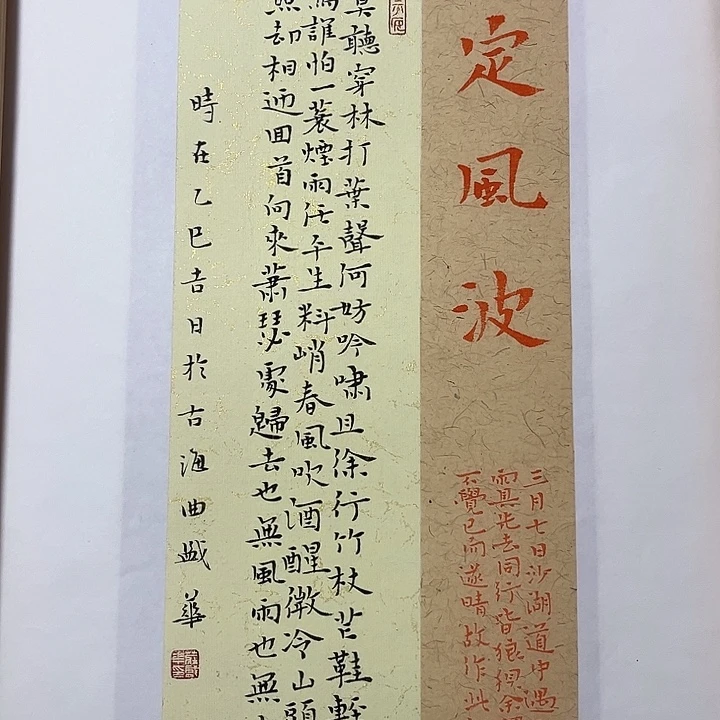 定風波
三月七日沙湖道中遇
雨具先去同行皆狼狽余
不覺已而遂晴故作此
莫聽穿林打葉聲何妨吟嘯且徐行竹杖芒鞋輕
誰怕一蓑煙雨任平生料峭春風吹酒醒微冷山頭
照却相迎回首向來蕭瑟處歸去也無風雨也無
時在乙巳吉日於古海曲盛華